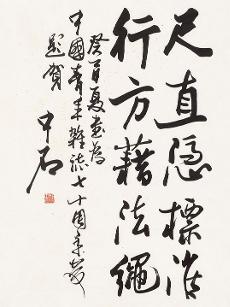 尺直隐標准
行方藉法繩
癸酉夏為
中國青年雜誌七十周年
題賀
中石